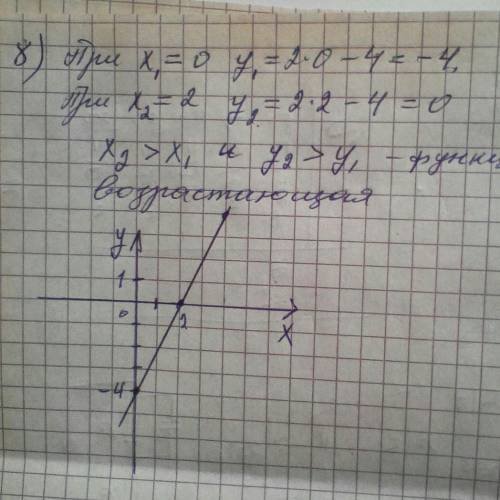 8) При x₁ = 0 y₁ = 2·0 − 4 = −4,
При x₂ = 2 y₂ = 2·2 − 4 = 0
x₂ > x₁ и y₂ > y₁ – функц
возрастающая
y
1
0
2
x
−4